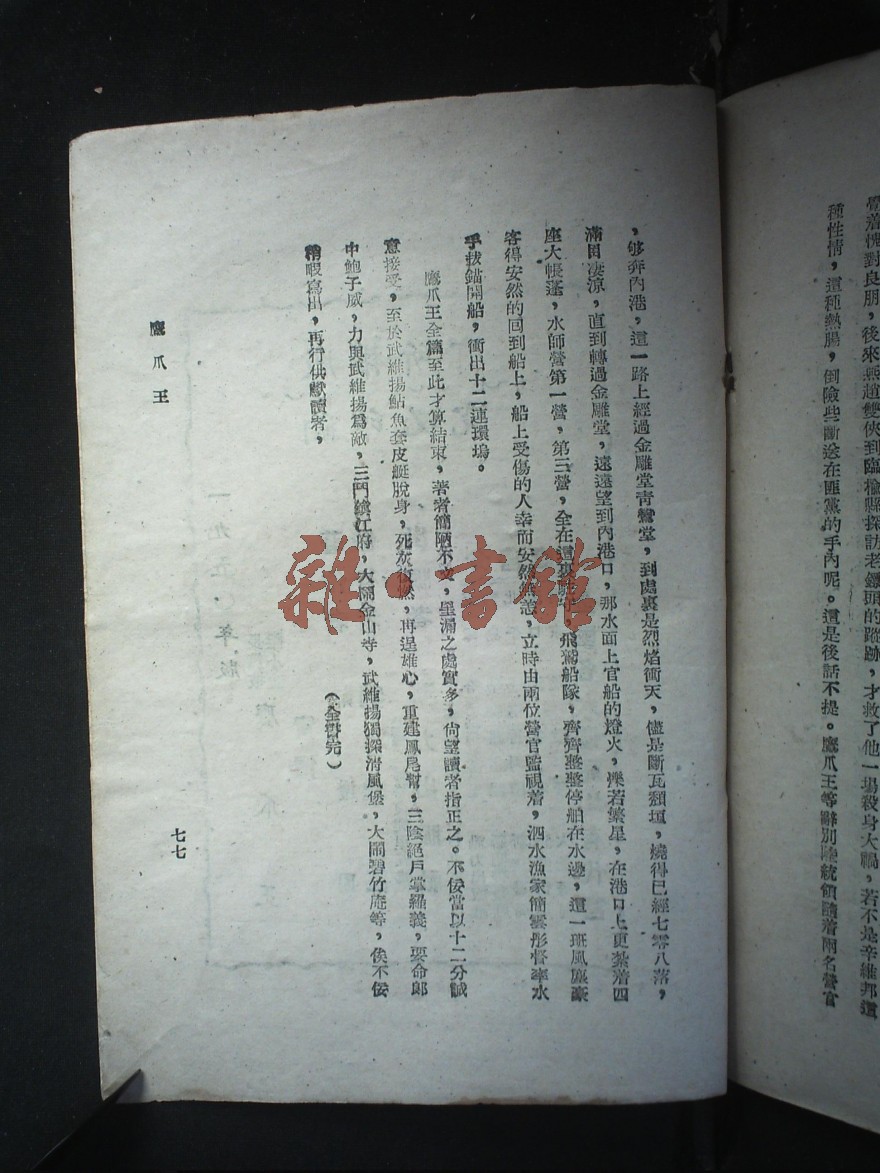 骨羞愧對良朋，後來燕趙雙俠到臨榆縣探訪老鏢頭的蹤跡，才救了他一場殺身大禍，若不是辛維邦這
種性情，這種熱腸，倒險些斷送在匪黨的手內呢。這是後話不提。鷹爪王等辭別統領隨着兩名營官
，够奔內港，這一路上經過金雕堂青鸞堂，到處裏是烈焰衝天，儘是斷瓦頹垣，燒得已經七零八落，
滿目凄涼，直到轉過金雕堂，遠遠望到內港口，那水面上官船的燈火，爍若繁星，在港口上更紮着四
座大帳蓬，水師營第一營，第三營，全在這裏，飛鷲船隊，齊齊整整停舶在水邊，這一班風塵豪
客得安然的回到船上，船上受傷的人幸而安然無恙，立時由兩位營官監視着，泗水漁家簡雲彤督率水
手拔錨開船，衝出十二連環塢。
鷹爪王全篇至此才算結束，著者簡陋不文，罣漏之處實多，尙望讀者指正之。不佞當以十二分誠
意接受，至於武維揚鮎魚套皮艇脫身，死灰復燃，再逞雄心，重建鳳尾幫，三陰絕戶掌羅義，要命郎
中鮑子威，力與武維揚爲敵，三鬥鎮江府，大鬧金山寺，武維揚獨探清風堡，大鬧碧竹庵等，俟不佞
稍暇寫出，再行供獻讀者，
（全書完）
鷹爪王
七七
雜·書館